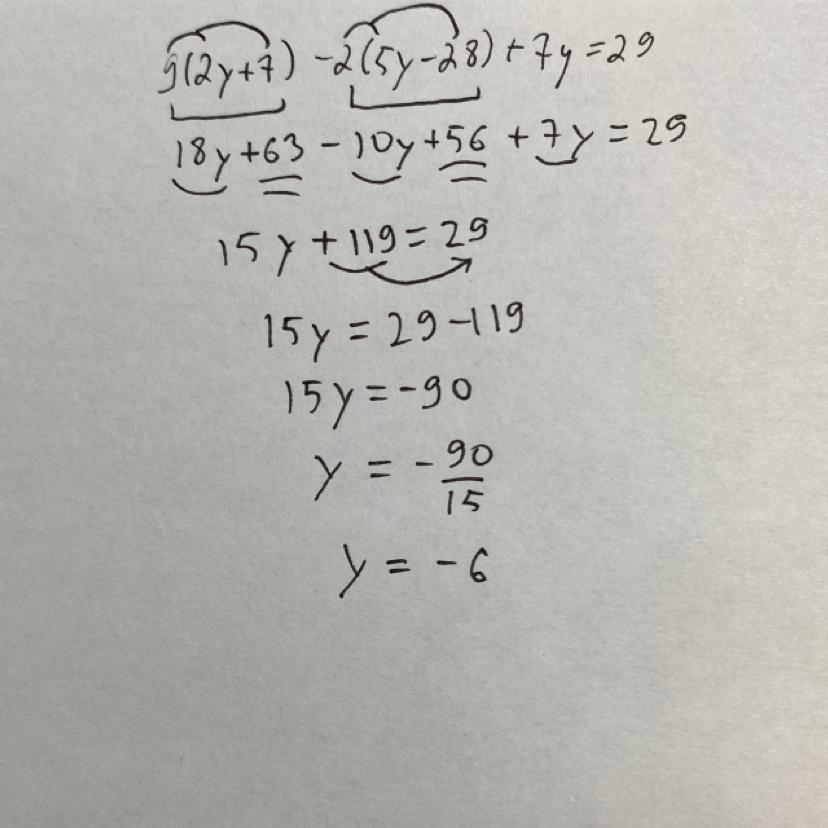 9(2y+7) -2(5y-28) + 7y = 29
18y+63 - 10y+56 + 7y = 29
15y + 119 = 29
15y = 29-119
15y = -90
y = - 90/15
y = -6